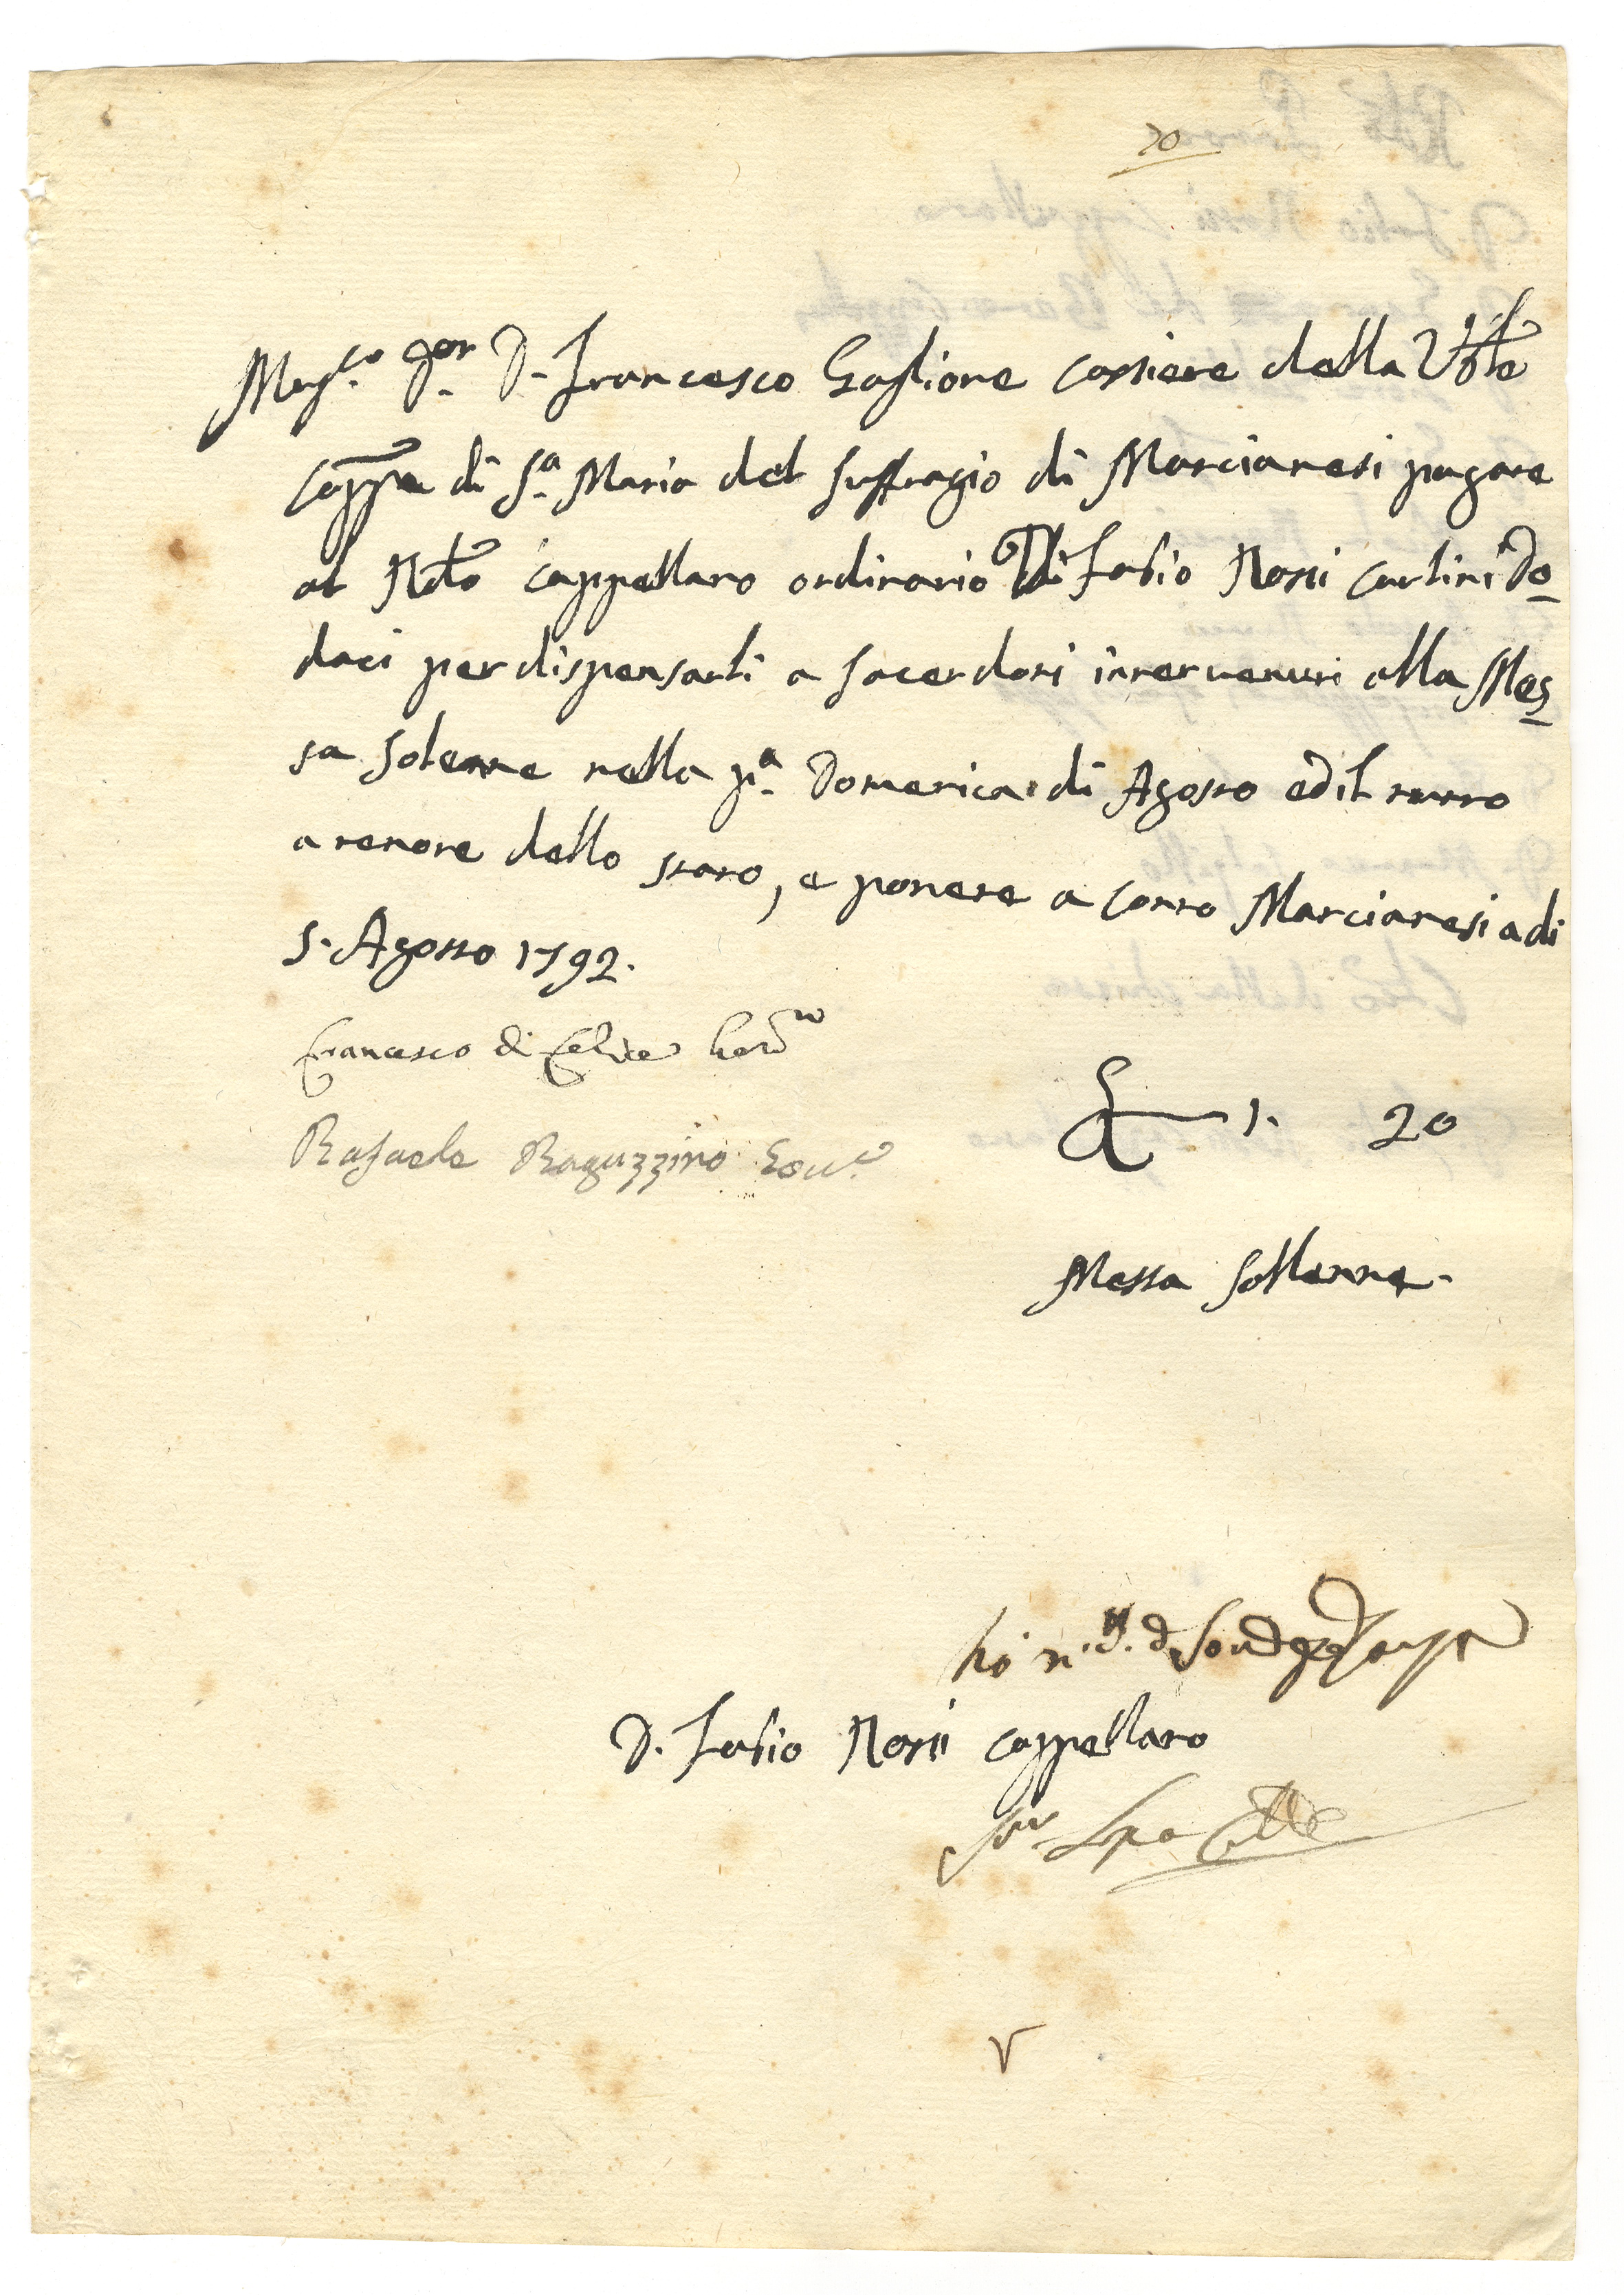 70
Mag.co Sor. D. Francesco Gaglione Cassiere della Vble
Cappa di Sa. Maria del Suffragio di Marcianesi pagate
al Rdo Cappellano ordinario D. Fabio Rossi Carlini Do
daci per dispensarli a Sacerdoti intervenuti alla Mes
sa Solenne nella pa. Domenica di Agosto ed il tutto
a tenore dello stato, e ponete a conto Marcianesi a di
5. Agosto 1792.
Francesco di Felice
Rafaele Raguzzino Gov.e
1. 20
Messa Sollenne.
D. Fabio Rossi Cappellano